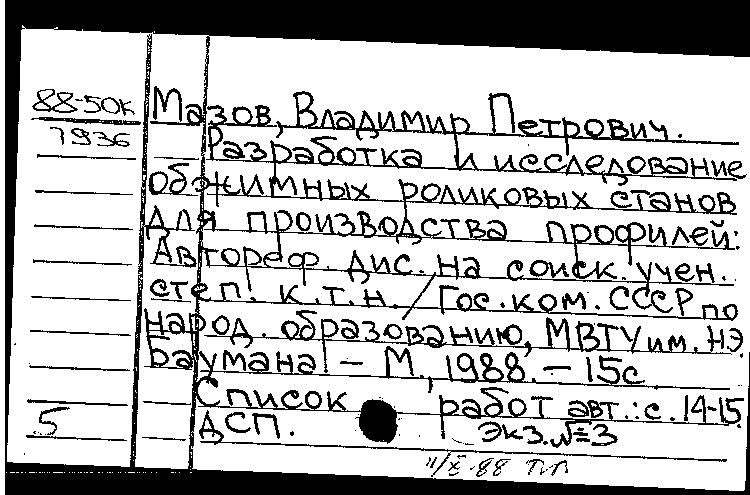 88-50к Мазов, Владимир Петрович.
7936 Разработка и исследование
обжимных роликовых станов
для производства профилей:
Автореф. дис. на соиск. учен.
степ. к.т.н. / Гос. ком. СССР по
народ. образованию, МВТУ им. НЭ
Баумана. – М., 1988. – 15с
Список работ авт.: с. 14-15.
5 ДСП. Экз. №3
11/X-88 п.п